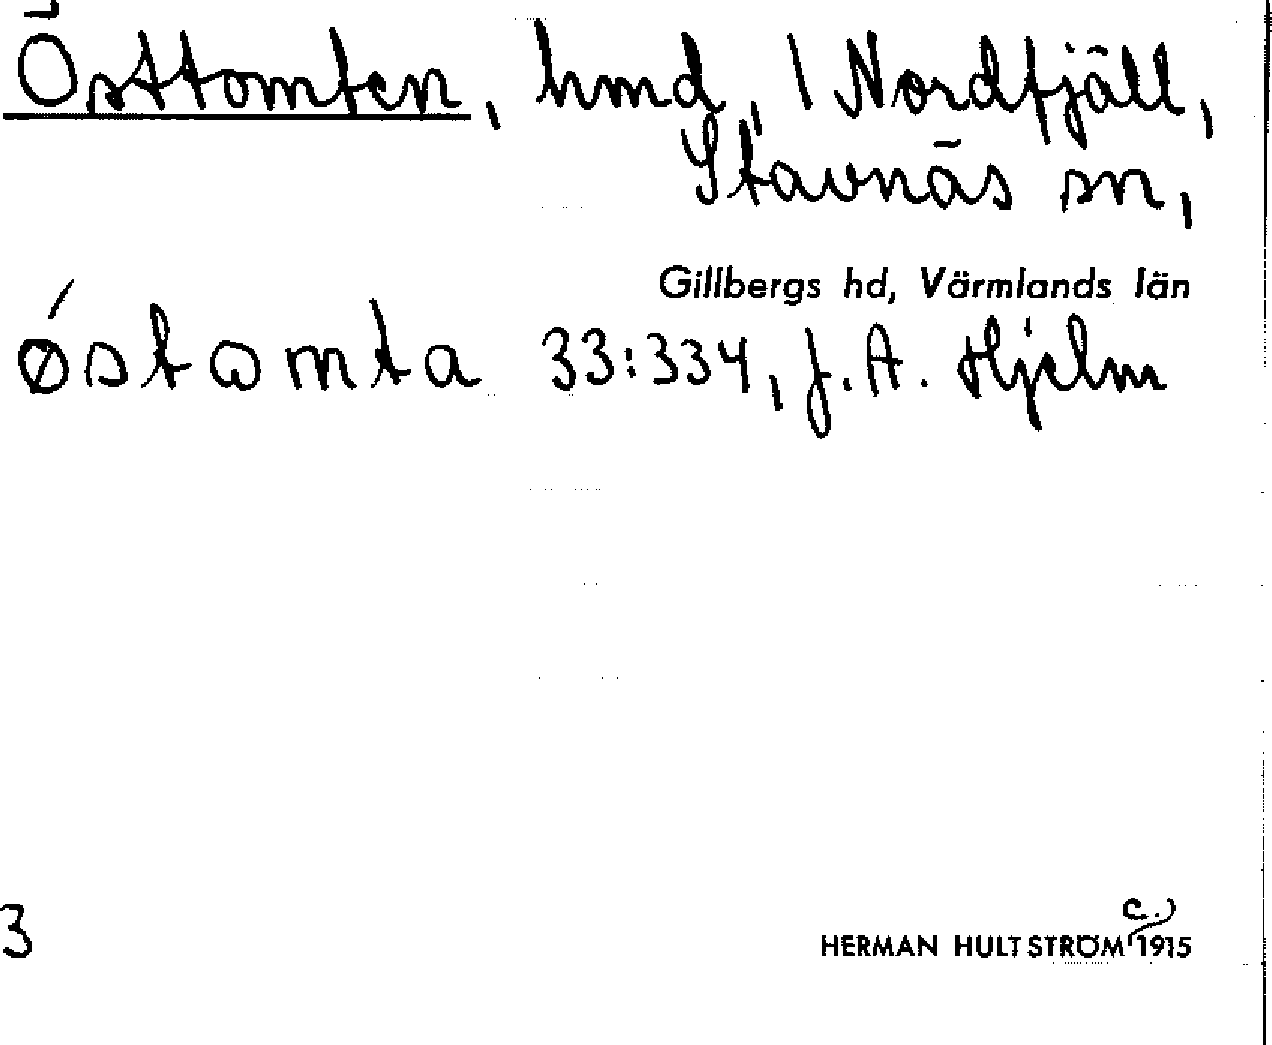 Östtomten, hmd, 1 Nordfjäll,
Stavnäs sn,
Gillbergs hd, Värmlands län
ǿstωmta 33:334, J. A. Hjelm
3
c.)
HERMAN HULTSTRÖM 1915